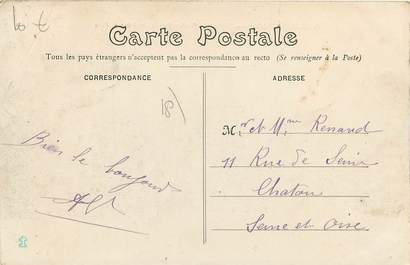 Carte Postale
Tous les pays étrangers n'acceptent pas la correspondance au recto (Se renseigner à la Poste)
CORRESPONDANCE
ADRESSE
18
Bien le bonjour
Mr et Mme Renaud
11 Rue de Seine
Chatou
Seine et Oise